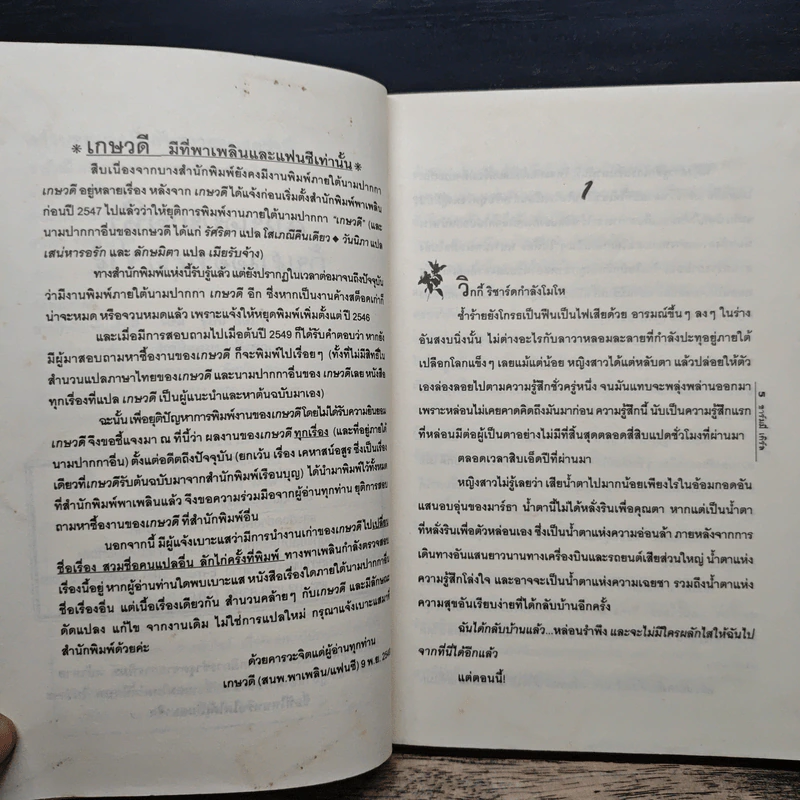 * เกษวดี มีที่พาเพลินและแฟนซีเท่านั้น *
สืบเนื่องจากบางสำนักพิมพ์ยังคงมีงานพิมพ์ภายใต้นามปากกา
เกษวดี อยู่หลายเรื่อง หลังจาก เกษวดี ได้แจ้งก่อนเริ่มตั้งสำนักพิมพ์พาเพลิน
ก่อนปี 2547 ไปแล้วว่าให้ยุติการพิมพ์งานภายใต้นามปากกา "เกษวดี" (และ
นามปากกาอื่นของเกษวดี ได้แก่ รัศริตา แปล โสเภณีคืนเดียว ◆ วันนิภา แปล
เสน่หารอรัก และ ลักษมิตา แปล เมียรับจ้าง)
ทางสำนักพิมพ์แห่งนี้รับรู้แล้ว แต่ยังปรากฏในเวลาต่อมาจนถึงปัจจุบัน
ว่ามีงานพิมพ์ภายใต้นามปากกา เกษวดี อีก ซึ่งหากเป็นงานค้างสต็อคเก่าก็
น่าจะหมด หรือจวนหมดแล้ว เพราะแจ้งให้หยุดพิมพ์ตั้งแต่ปี 2546
และเมื่อมีการสอบถามไปเมื่อต้นปี 2549 ก็ได้รับคำตอบว่า หากยัง
มีผู้มาสอบถามหาซื้องานของเกษวดี ก็จะพิมพ์ไปเรื่อยๆ (ทั้งที่ไม่มีสิทธิ์ใน
สำนวนแปลภาษาไทยของเกษวดี และนามปากกาอื่นของ เกษวดีเลย หนังสือ
ทุกเรื่องที่แปล เกษวดี เป็นผู้แนะนำและหาต้นฉบับมาเอง)
ฉะนั้น เพื่อยุติปัญหาการพิมพ์งานของเกษวดีโดยไม่ได้รับความยินยอม
เกษวดี จึงขอชี้แจงมา ณ ที่นี้ว่า ผลงานของเกษวดีทุกเรื่อง (และที่อยู่ภายใต้
นามปากกาอื่น) ตั้งแต่อดีตถึงปัจจุบัน (ยกเว้น เรื่อง เคหาสน์อสูร ซึ่งเป็นเรื่อง
เดียวที่เกษวดีรับต้นฉบับมาจากสำนักพิมพ์เรือนบุญ) ได้นำมาพิมพ์ไว้ทั้งหมด
ที่สำนักพิมพ์พาเพลินแล้ว จึงขอความร่วมมือจากผู้อ่านทุกท่าน ยุติการสอบ
ถามหาซื้องานของเกษวดี ที่สำนักพิมพ์อื่น
นอกจากนี้ มีผู้แจ้งเบาะแสว่ามีการนำงานเก่าของเกษวดีไปเปลี่ยน
ชื่อเรื่อง สวมชื่อคนแปลอื่น ลักไก่ครั้งที่พิมพ์ ทางพาเพลินกำลังตรวจสอบ
เรื่องนี้อยู่ หากผู้อ่านท่านใดพบเบาะแส หนังสือเรื่องใดภายใต้นามปากกาอื่น
ชื่อเรื่องอื่น แต่เนื้อเรื่องเดียวกัน สำนวนคล้ายๆ กับเกษวดี และมีลักษณะ
ดัดแปลง แก้ไข จากงานเดิม ไม่ใช่การแปลใหม่ กรุณาแจ้งเบาะแสมาที่
สำนักพิมพ์ด้วยค่ะ
ด้วยคารวะจิตแด่ผู้อ่านทุกท่าน
เกษวดี (สนพ.พาเพลิน/แฟนซี) 9 พ.ย.
1
วิกกี้ ริชาร์ดกำลังโมโห
ซ้ำร้ายยังโกรธเป็นฟืนเป็นไฟเสียด้วย อารมณ์ขึ้นๆ ลงๆ ในร่าง
อันสงบนิ่งนั้น ไม่ต่างอะไรกับลาวาหลอมละลายที่กำลังปะทุอยู่ภายใต้
เปลือกโลกแข็งๆ เลยแม้แต่น้อย หญิงสาวได้แต่หลับตา แล้วปล่อยให้ตัว
เองล่องลอยไปตามความรู้สึกชั่วครู่หนึ่ง จนมันแทบจะพลุ่งพล่านออกมา
เพราะหล่อนไม่เคยคาดคิดถึงมันมาก่อน ความรู้สึกนี้ นับเป็นความรู้สึกแรก
ที่หล่อนมีต่อผู้เป็นตาอย่างไม่มีที่สิ้นสุดตลอดสี่สิบแปดชั่วโมงที่ผ่านมา
ตลอดเวลาสิบเอ็ดปีที่ผ่านมา
หญิงสาวไม่รู้เลยว่า เสียน้ำตาไปมากน้อยเพียงไรในอ้อมกอดอัน
แสนอบอุ่นของมาร์ธา น้ำตานี้ไม่ได้หลั่งรินเพื่อคุณตา หากแต่เป็นน้ำตา
ที่หลั่งรินเพื่อตัวหล่อนเอง ซึ่งเป็นน้ำตาแห่งความอ่อนล้า ภายหลังจากการ
เดินทางอันแสนยาวนานทางเครื่องบินและรถยนต์เสียส่วนใหญ่ น้ำตาแห่ง
ความรู้สึกโล่งใจ และอาจจะเป็นน้ำตาแห่งความเฉยชา รวมถึงน้ำตาแห่ง
ความสุขอันเรียบง่ายที่ได้กลับบ้านอีกครั้ง
ฉันได้กลับบ้านแล้ว...หล่อนรำพึง และจะไม่มีใครผลักไสให้ฉันไป
จากที่นี่ได้อีกแล้ว
แต่ตอนนี้!
5